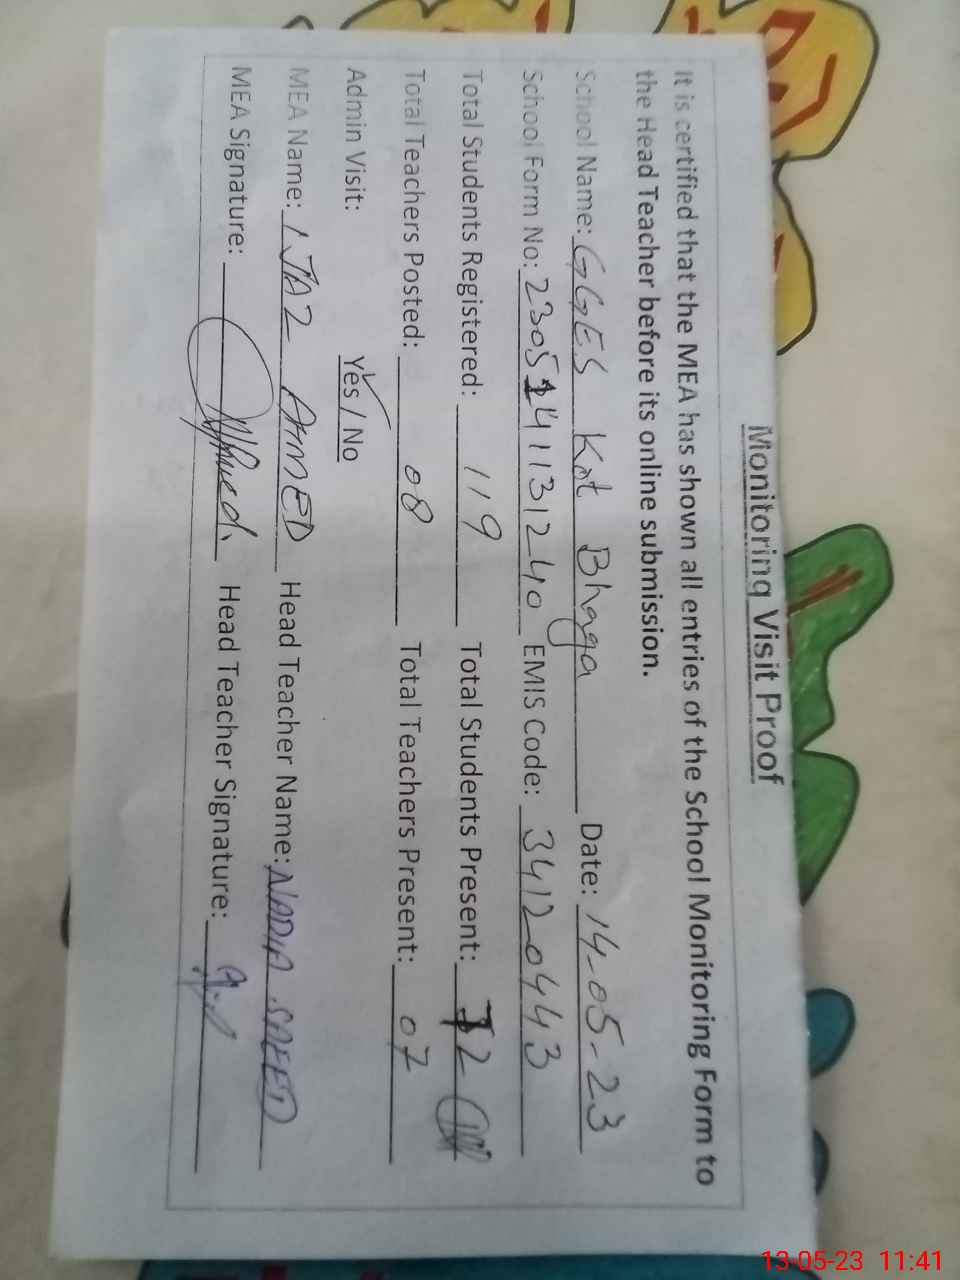 Monitoring Visit Proof
It is certified that the MEA has shown all entries of the School Monitoring Form to
the Head Teacher before its online submission.
School Name: GGES Kot Bhaga Date: 14-05-23
School Form No: 2305141131240 EMIS Code: 34120443
Total Students Registered: 119 Total Students Present: 72
Total Teachers Posted: 08 Total Teachers Present: 07
Admin Visit: Yes / No
MEA Name: IJAZ AHMED Head Teacher Name: NADIA SAEED
MEA Signature: Head Teacher Signature:
13-05-23 11:41